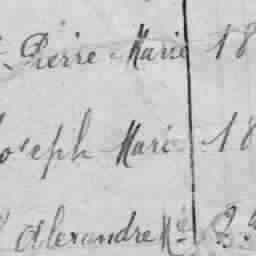 Pierre Marie 18
Joseph Marie 18
Alexandre Me